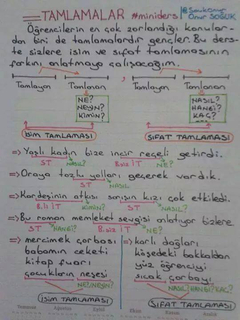 TAMLAMALAR #miniders
Onur SOĞUK
Öğrencilerin en çok zorlandığı konular-
dan biri de tamlamalardır gençler. Bu ders-
te sizlere isim ve sıfat tamlamasının
farkını anlatmaya çalışacağım.
Tamlayan Tamlanan Tamlayan Tamlanan
NE?
NEYİN?
KİMİN?
NASIL?
HANGİ?
KAÇ?
İSİM TAMLAMASI SIFAT TAMLAMASI
=> Yaşlı kadın bize incir reçeli getirdi.
ST NASIL? B.siz İT NE?
=> Oraya tozlu yolları geçerek vardık.
ST NASIL
=> Kardeşinin atkısı sarışın kızı çok etkiledi.
B.li İT KİMİN? ST NASIL?
=> Bu roman memleket sevgisi anlatıyor bizlere.
ST HANGİ? B.siz İT NE?
=> mercimek çorbası
babamın ceketi
kitap fuarı
çocukların neşesi
NE/NEYİN?
İSİM TAMLAMASI
=> karlı dağları
köşedeki bakkaldan
yüz öğrenciyi
sıcak çorbayı
NASIL/HANGİ/KAÇ?
SIFAT TAMLAMASI